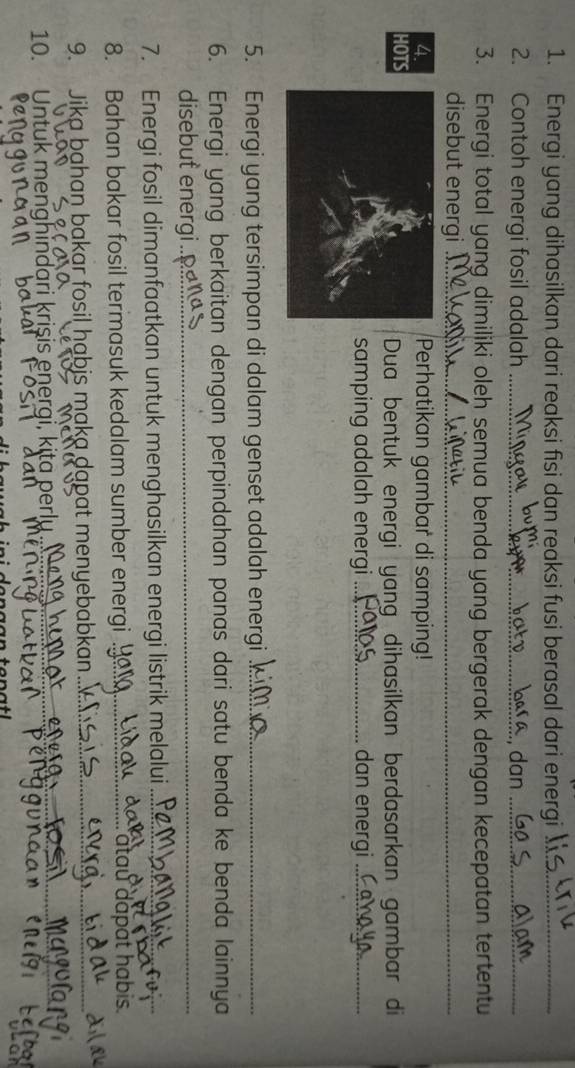 1. Energi yang dihasilkan dari reaksi fisi dan reaksi fusi berasal dari energi listrik
2. Contoh energi fosil adalah Minyak bumi, batu bara, dan Gas alam
3. Energi total yang dimiliki oleh semua benda yang bergerak dengan kecepatan tertentu
disebut energi Mekanik / kinetik
4. Perhatikan gambar di samping!
HOTS
Dua bentuk energi yang dihasilkan berdasarkan gambar di
samping adalah energi Panas dan energi Cahaya
5. Energi yang tersimpan di dalam genset adalah energi kimia
6. Energi yang berkaitan dengan perpindahan panas dari satu benda ke benda lainnya
disebut energi panas
7. Energi fosil dimanfaatkan untuk menghasilkan energi listrik melalui Pembangkit
8. Bahan bakar fosil termasuk kedalam sumber energi yang tidak dapat diperbarui
atau dapat habis.
9. Jika bahan bakar fosil habis maka dapat menyebabkan krisis energi, tidak
secara terus menerus
10. Untuk menghindari krisis energi, kita perlu menghemat energi fosil mengurangi
Penggunaan bakar Fosil dan meningkatkan penggunaan energi terbar
ukan